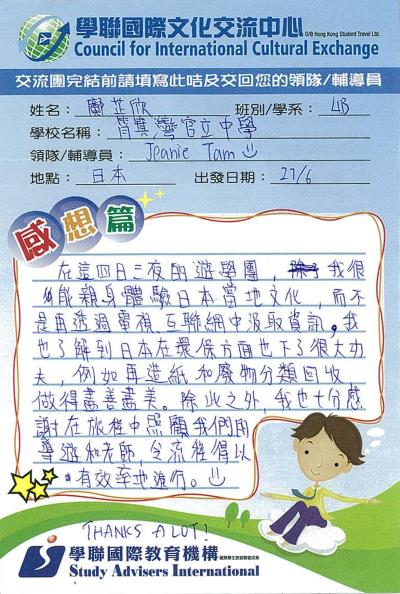 學聯國際文化交流中心 O/B Hong Kong Student Travel Ltd.
Council for International Cultural Exchange
交流團完結前請填寫此咭及交回您的領隊/輔導員
姓名： 鄺芷欣 班別/學系： 4B
學校名稱： 筲箕灣官立中學
領隊/輔導員： Jeanie Tam
地點： 日本 出發日期： 27/6
感想篇
在這四日三夜的遊學團，我很
能親身體驗日本當地文化，而不
是再透過電視、互聯網中汲取資訊。我
也了解到日本在環保方面也下了很大功
夫，例如再造紙和廢物分類回收
做得盡善盡美。除此之外，我也十分感
謝在旅程中照顧我們的
導遊和老師，令流程得以
有效率地進行。
THANKS A LOT!
學聯國際教育機構
Study Advisers International